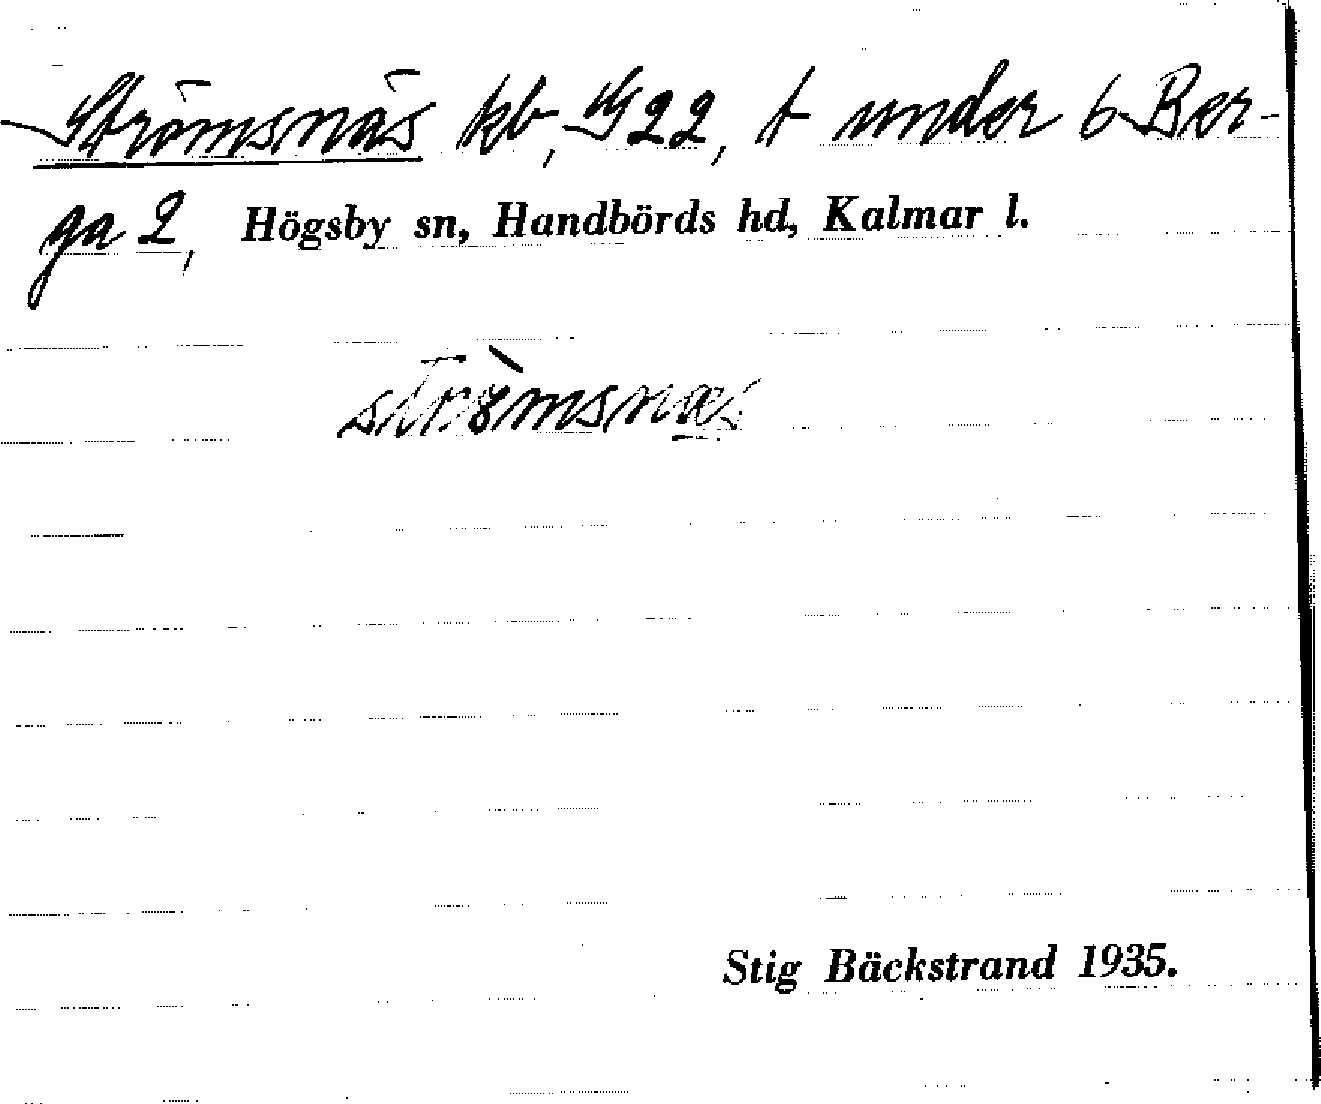 Strömsnäs kb, G22, t under 6 Ber-
ga 2, Högsby sn, Handbörds hd, Kalmar l.
strò̄msnæs
Stig Bäckstrand 1935.